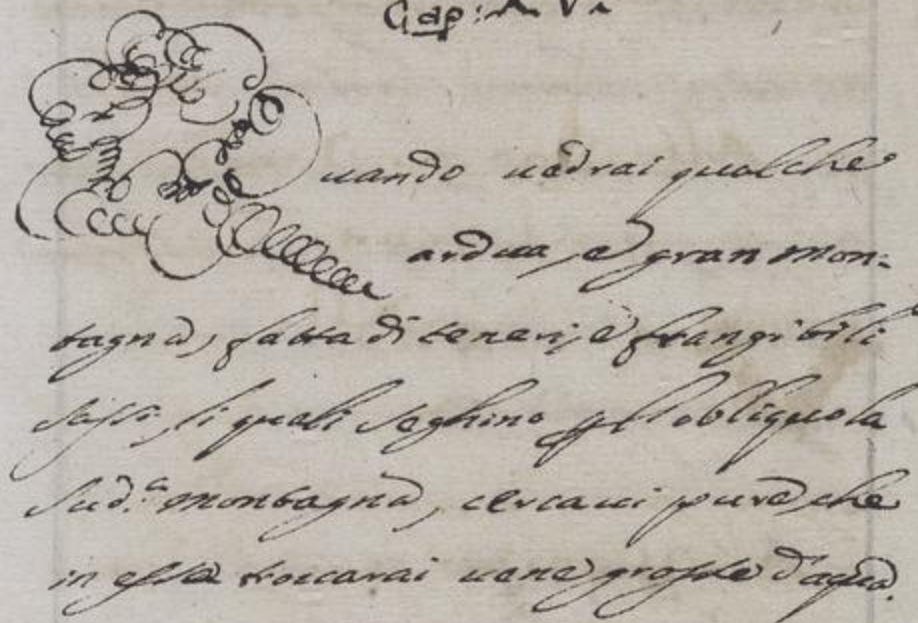 Cap: XVI
Quando uedrai qualche
ardua, e gran mon=
tagna, fatta di teneri, e frangibili
sassi, li quali seghino p l'obliquo la
sud.a montagna, cercaui pure che
in essa troccarai uene grosse d'aqua.